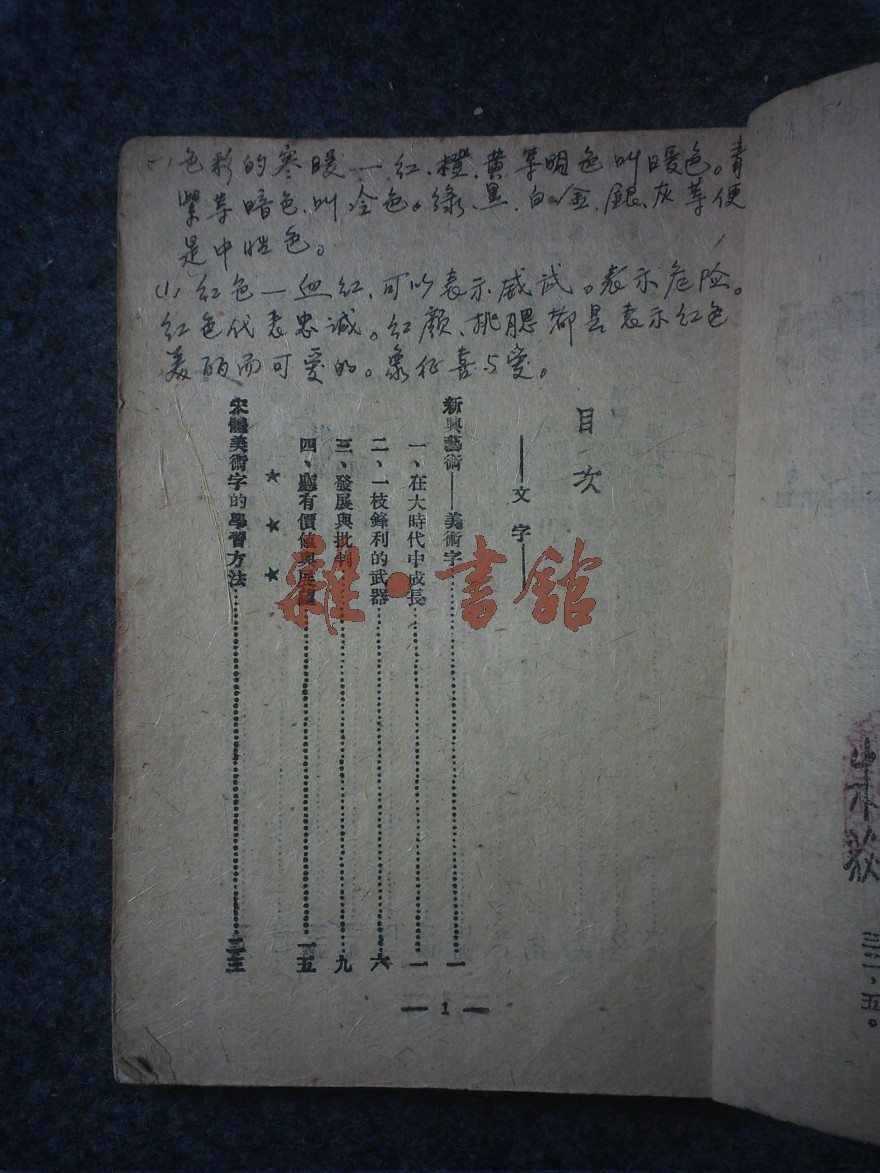 (一)色彩的寒暖—红、橙、黄等明色叫暖色。青
紫等暗色、叫冷色。绿、黑、白、金、銀、灰等便
是中性色。
(1)红色—血红、可以表示威武。表示危险。
红色代表忠诚。红颜、桃腮都是表示红色
美丽而可爱的。象征喜与爱。
目次
——文字——
新興藝術——美術字……一
一、在大時代中成長……一
二、一枝鋒利的武器……六
三、發展與批判……九
四、應有價值與展望……一五
★ ★ ★
宋體美術字的學習方法……二三
— 1 —
雜·書館
三二,五。